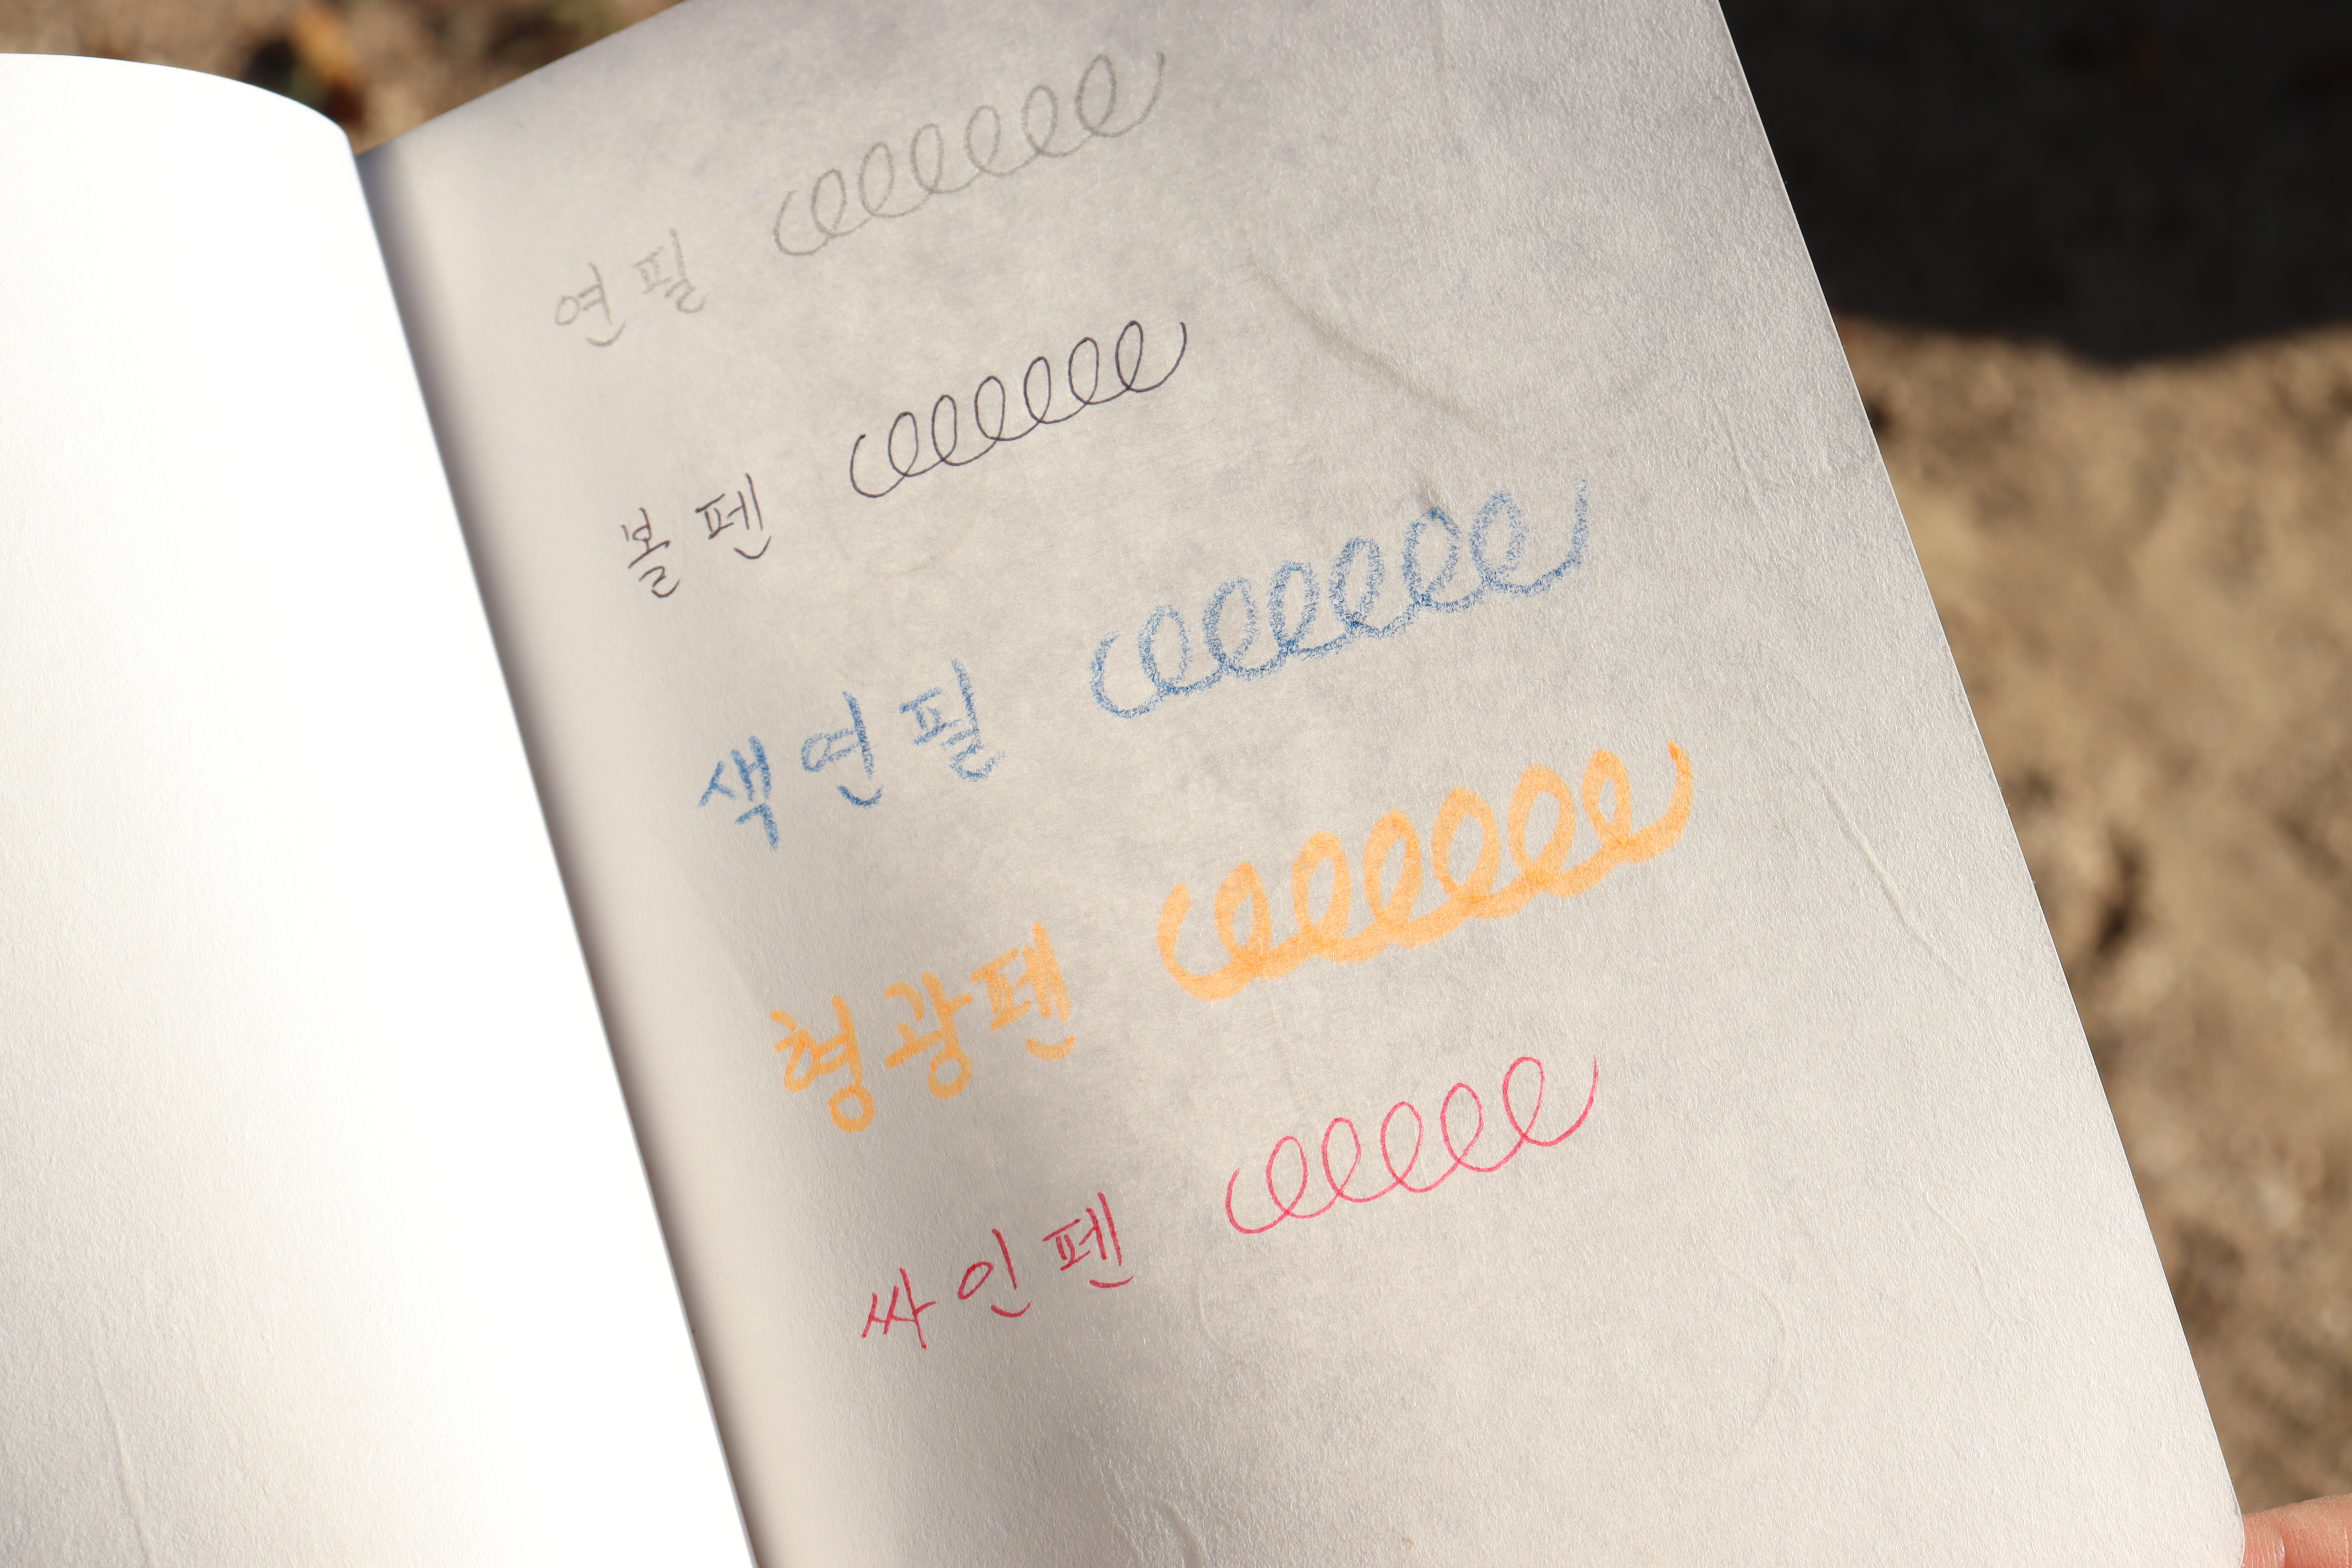 연필
볼펜
색연필
형광펜
싸인펜